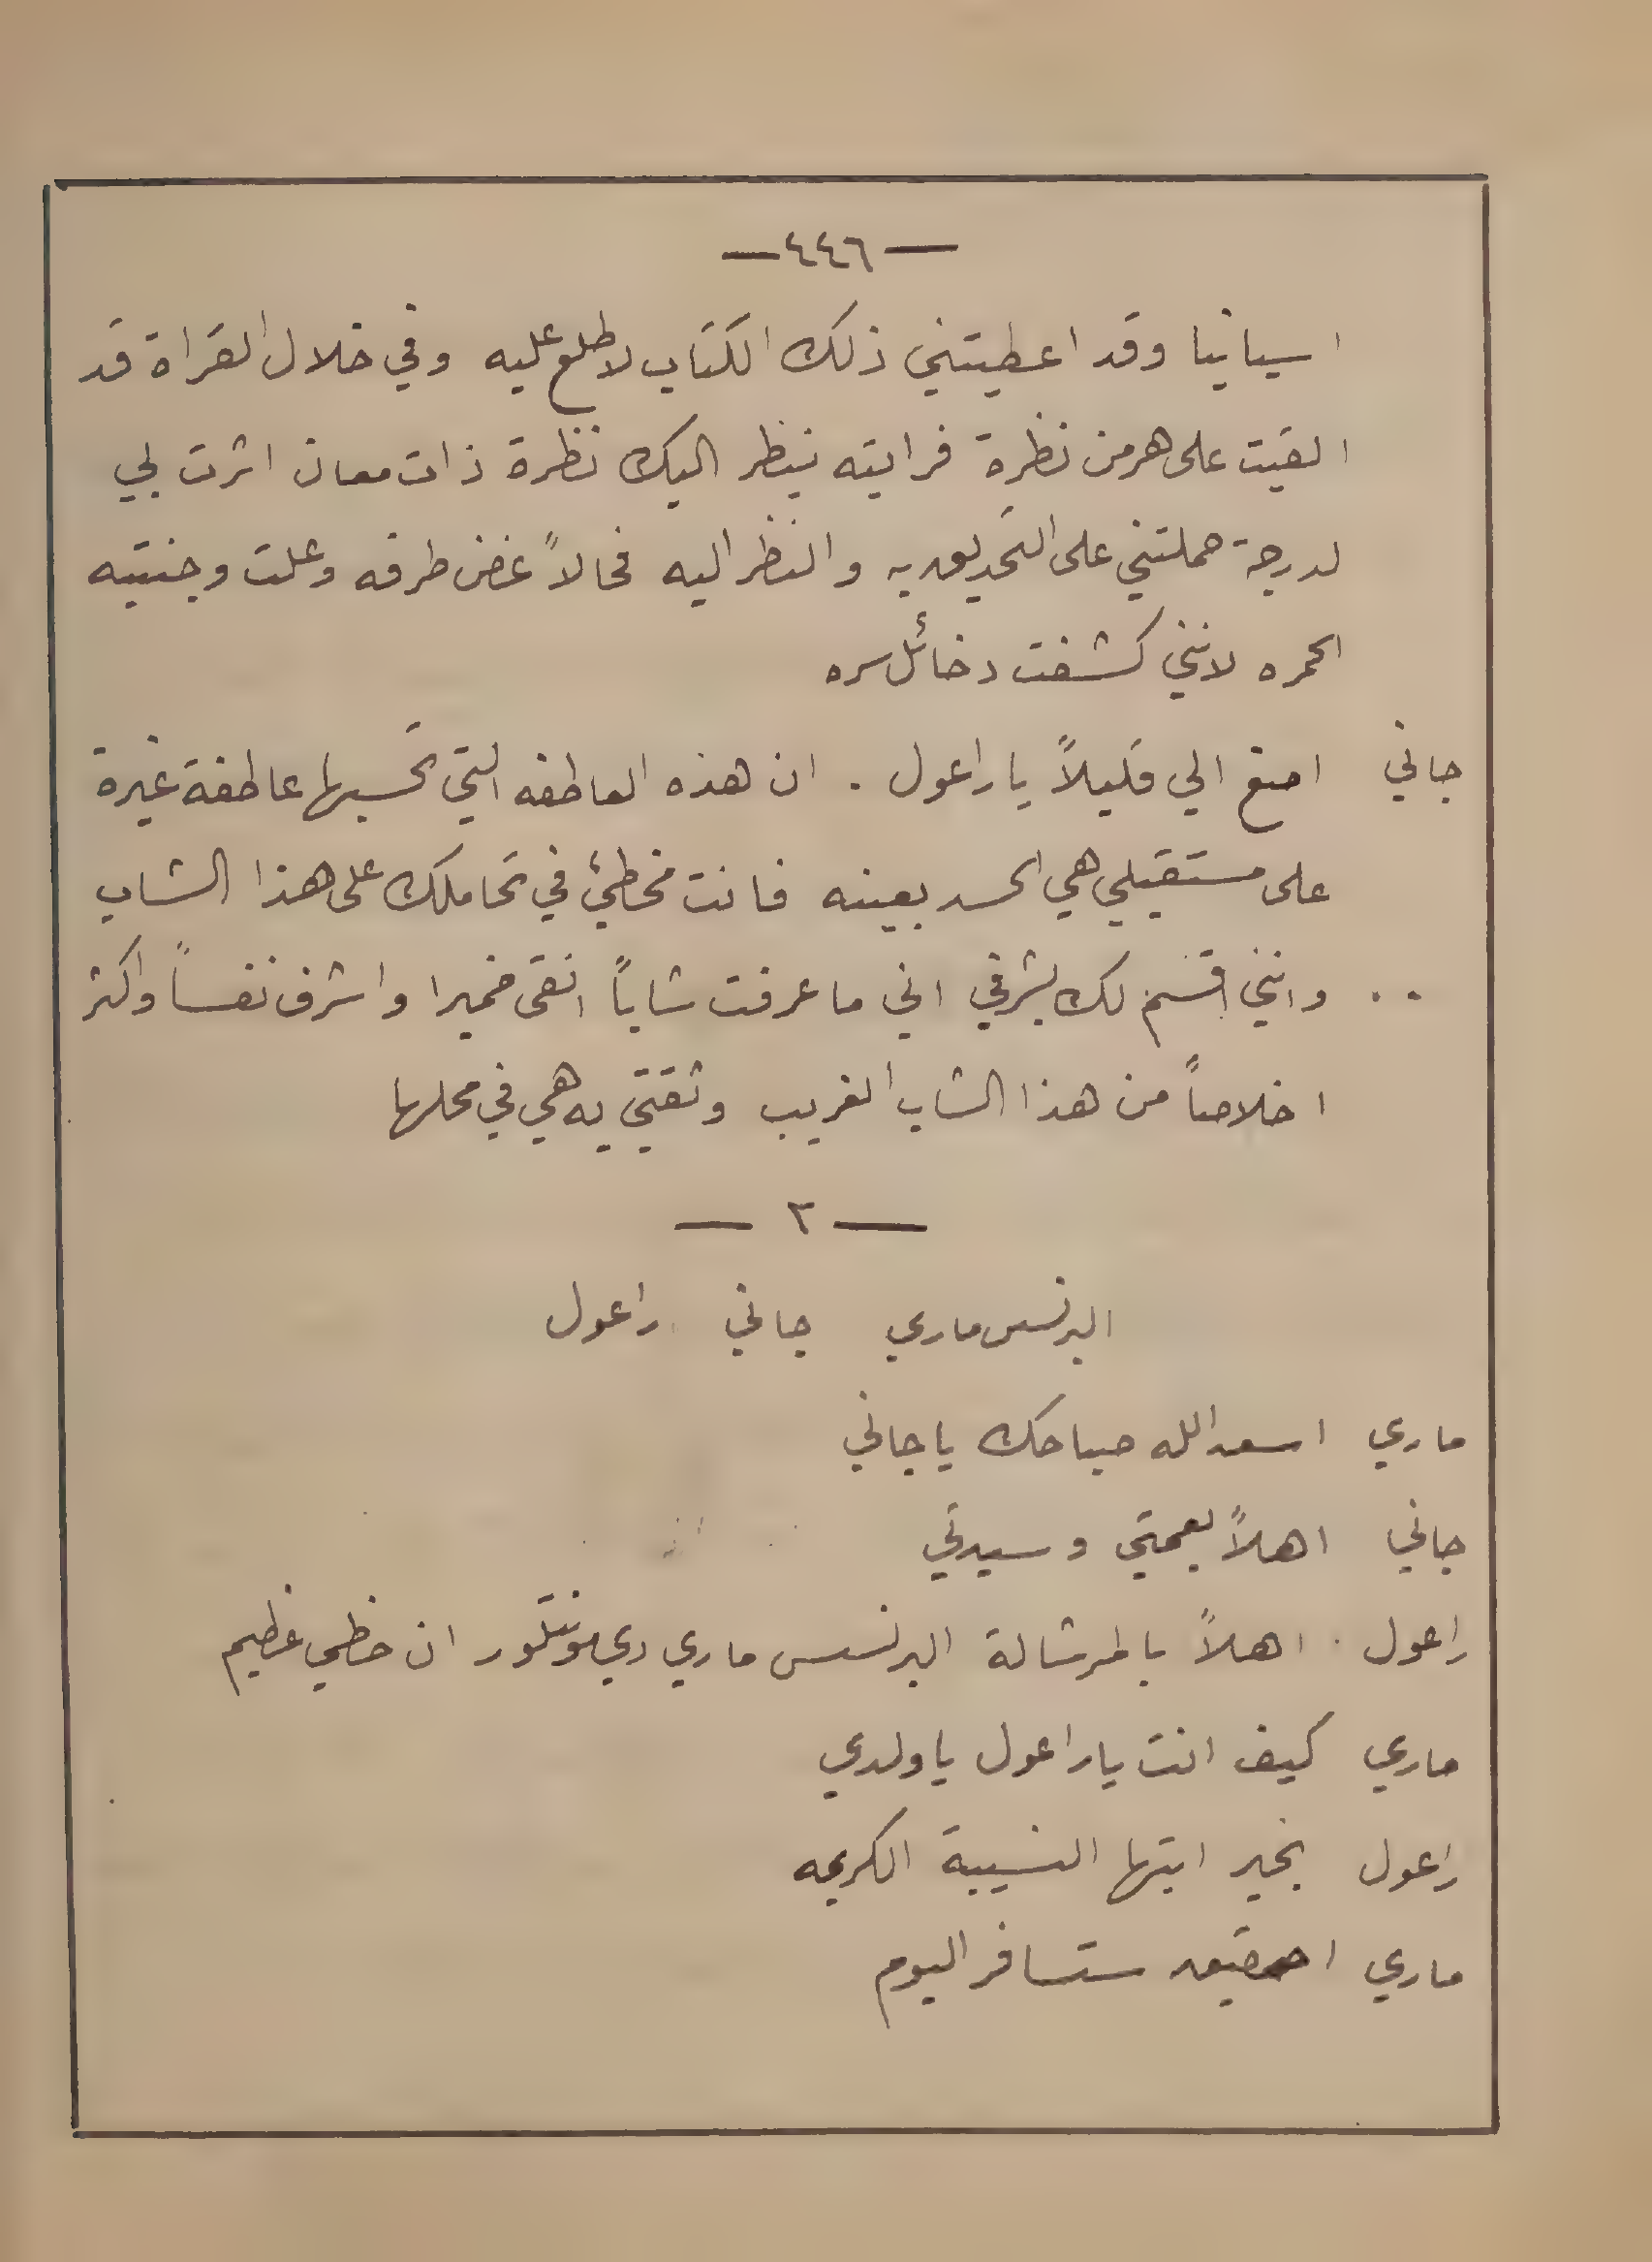 — ٤٤٦ —
اسبانيا وقد اعطيتني ذلك الكتاب لاطلع عليه وفي خلال القراة قد
القيت على هرمن نظرة فرايته ينظر اليك نظرة ذات معان اثرت بي
لدرجة حملتني على التحديق به والنظر اليه فحالاً غض طرفه وعلت وجنتيه
الحمره لانني كشفت دخائل سره
جاني اصغ الي قليلاً يا راعول . ان هذه العاطفه التي تحسبها عاطفة غيرة
على مستقبلي هي الحسد بعينه فانت مخطئ في تحاملك على هذا الشاب
.. وانني اقسم لك بشرفي اني ما عرفت شاباً انقى ضميرا واشرف نفساً واكثر
اخلاصاً من هذا الشاب الغريب وثقتي به هي في محلها
— ٢ —
البرنسس ماري جاني راعول
ماري اسعد الله صباحك يا جاني
جاني اهلاً بعمتي وسيدتي
راعول اهلاً بالمرشالة البرنسس ماري دي مونتلور ان حظي عظيم
ماري كيف انت يا راعول يا ولدي
راعول بخير ايتها النسيبة الكريمه
ماري احقيقه ستسافر اليوم